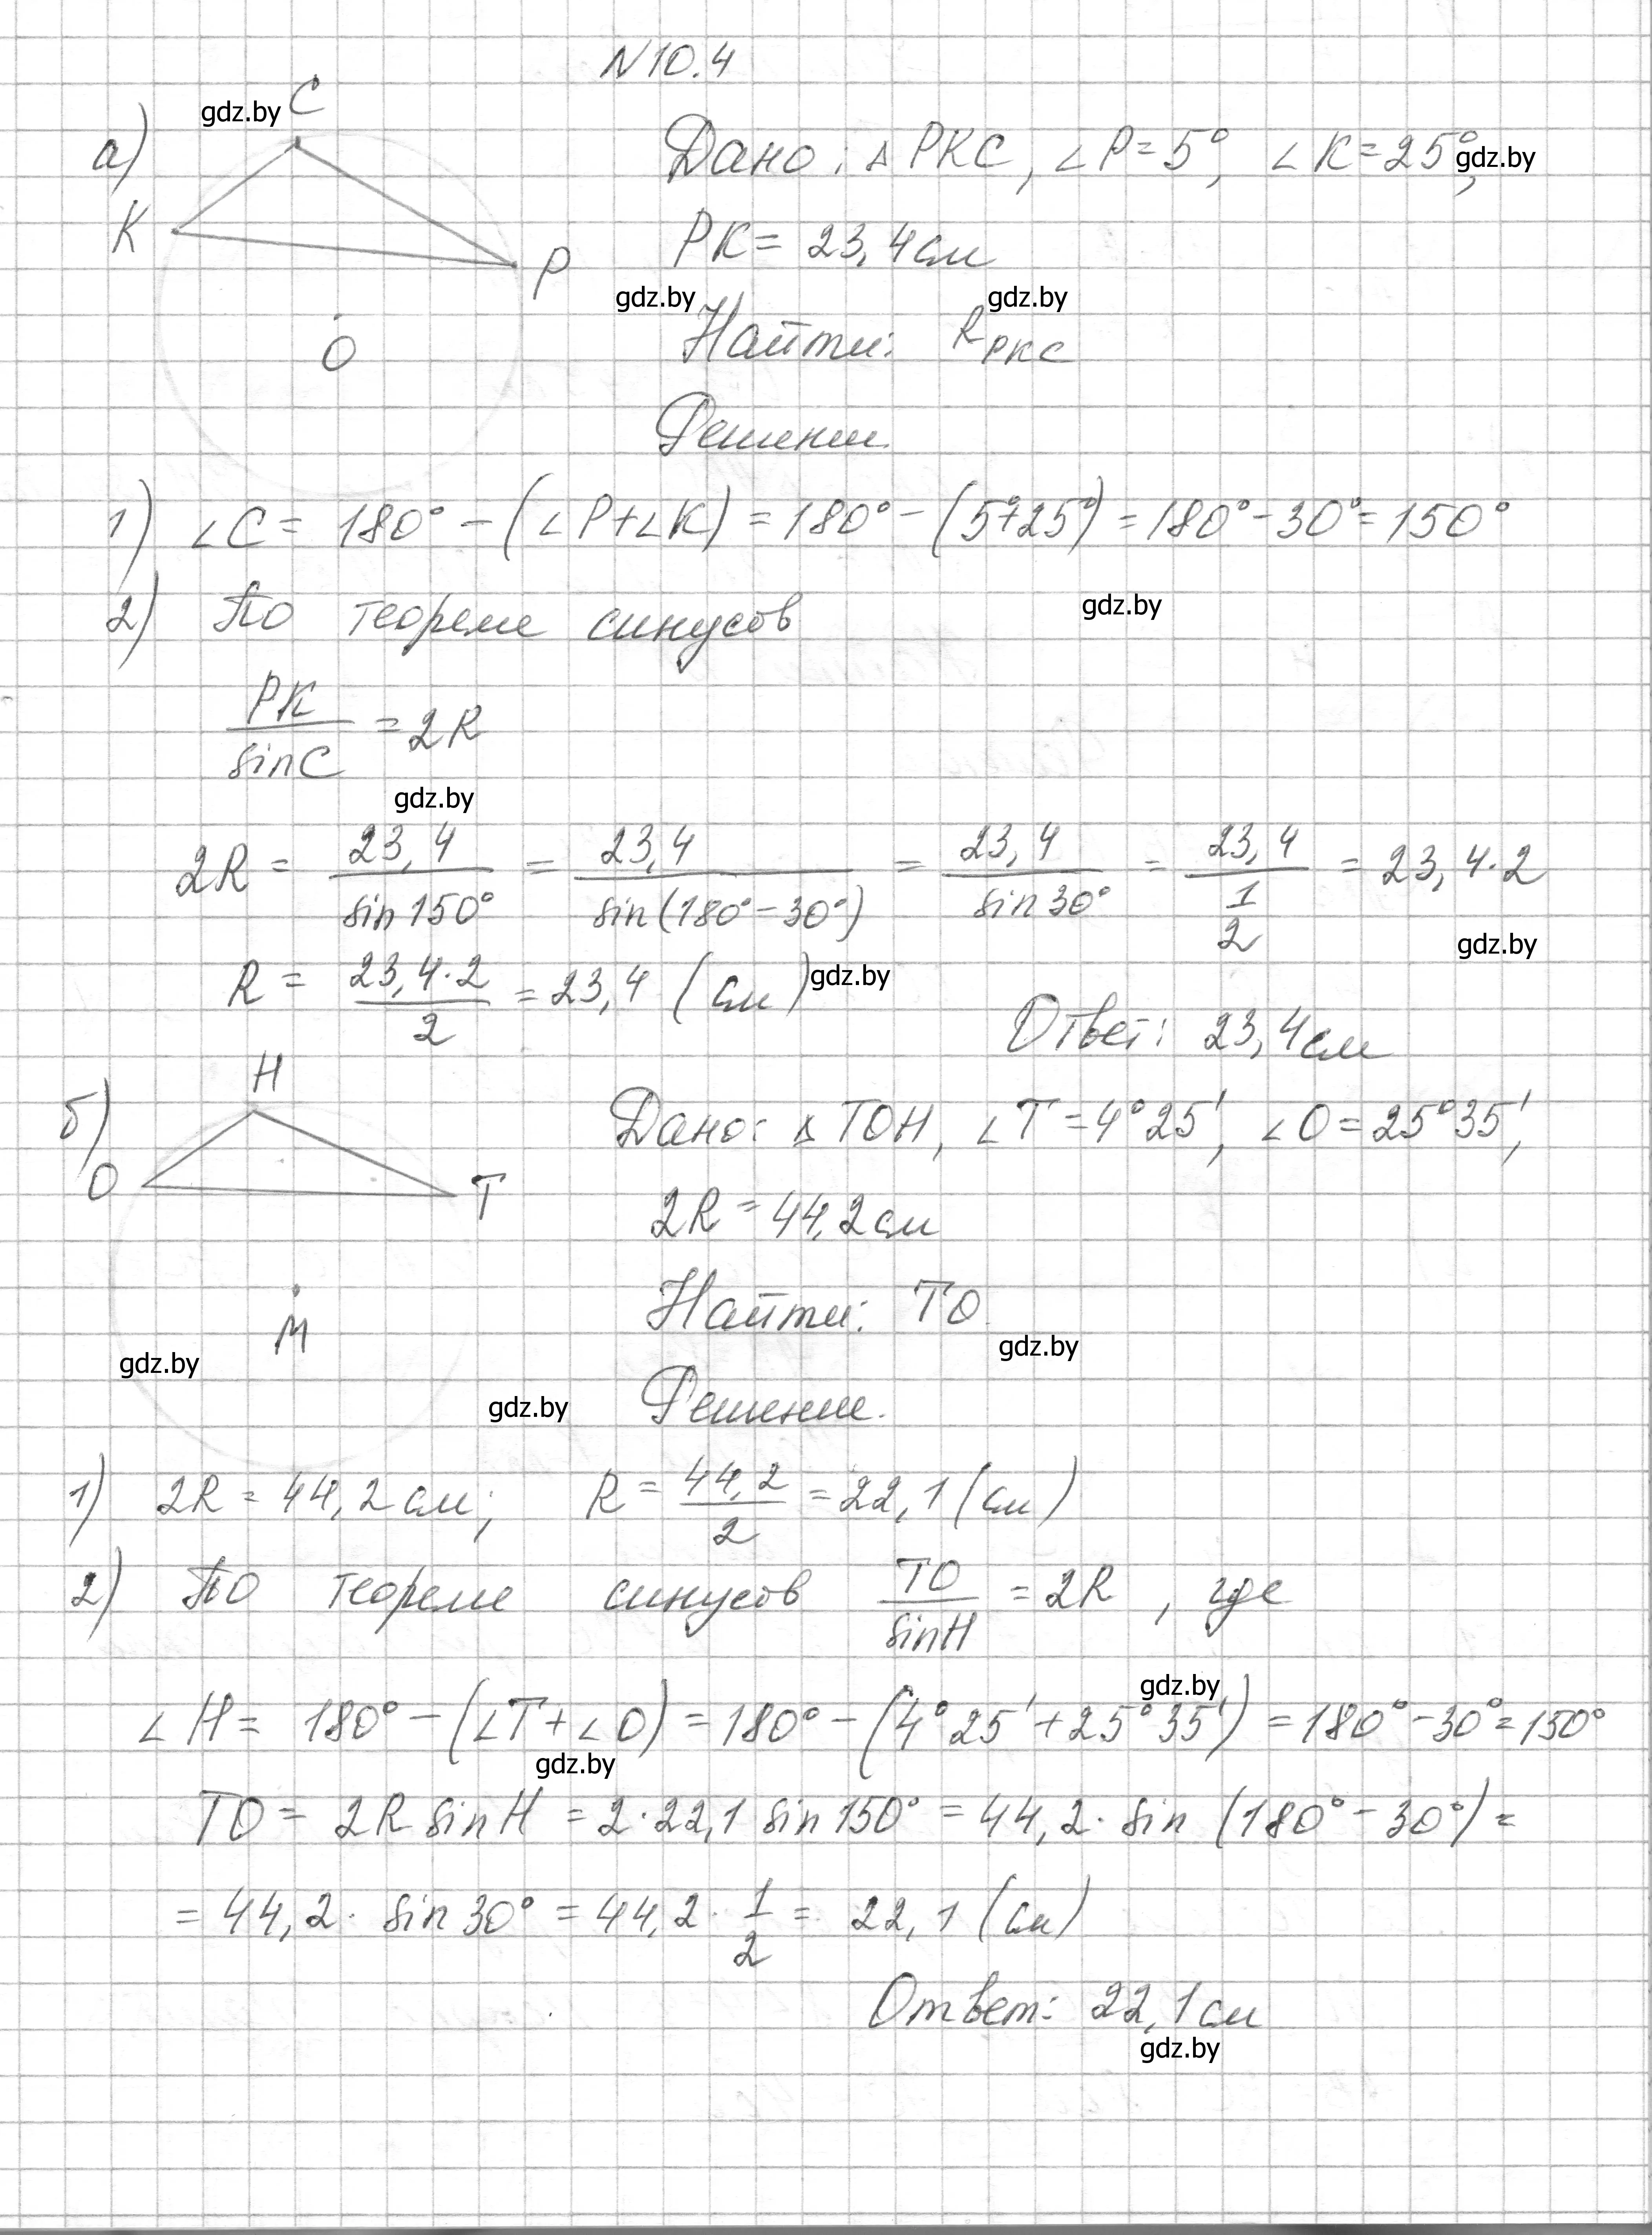 N10.4
gdz.by
C
а)
K
P
O
Дано: △ PKC, ∠P=5°, ∠K=25°,
gdz.by
PK= 23,4см
gdz.by
gdz.by
Найти: R_PKC
Решение.
1) ∠C= 180° - (∠P+∠K) = 180° - (5°+25°) = 180° - 30° = 150°
2) По теореме синусов
gdz.by
PK/sinC = 2R
gdz.by
2R = 23,4/sin150° = 23,4/sin(180° - 30°) = 23,4/sin30° = 23,4/(1/2) = 23,4·2
gdz.by
R = 23,4·2/2 = 23,4 (см)
gdz.by
Ответ: 23,4см
б)
H
O
T
M
Дано: △ TOH, ∠T=4°25', ∠O=25°35',
2R = 44,2см
Найти: TO
gdz.by
gdz.by
gdz.by
Решение.
1) 2R = 44,2см; R = 44,2/2 = 22,1 (см)
2) По теореме синусов TO/sinH = 2R, где
gdz.by
∠H= 180° - (∠T+∠O) = 180° - (4°25' + 25°35') = 180° - 30° = 150°
gdz.by
TO = 2R sinH = 2·22,1 sin150° = 44,2· sin (180° - 30°) =
= 44,2· sin30° = 44,2· 1/2 = 22,1 (см)
Ответ: 22,1см
gdz.by